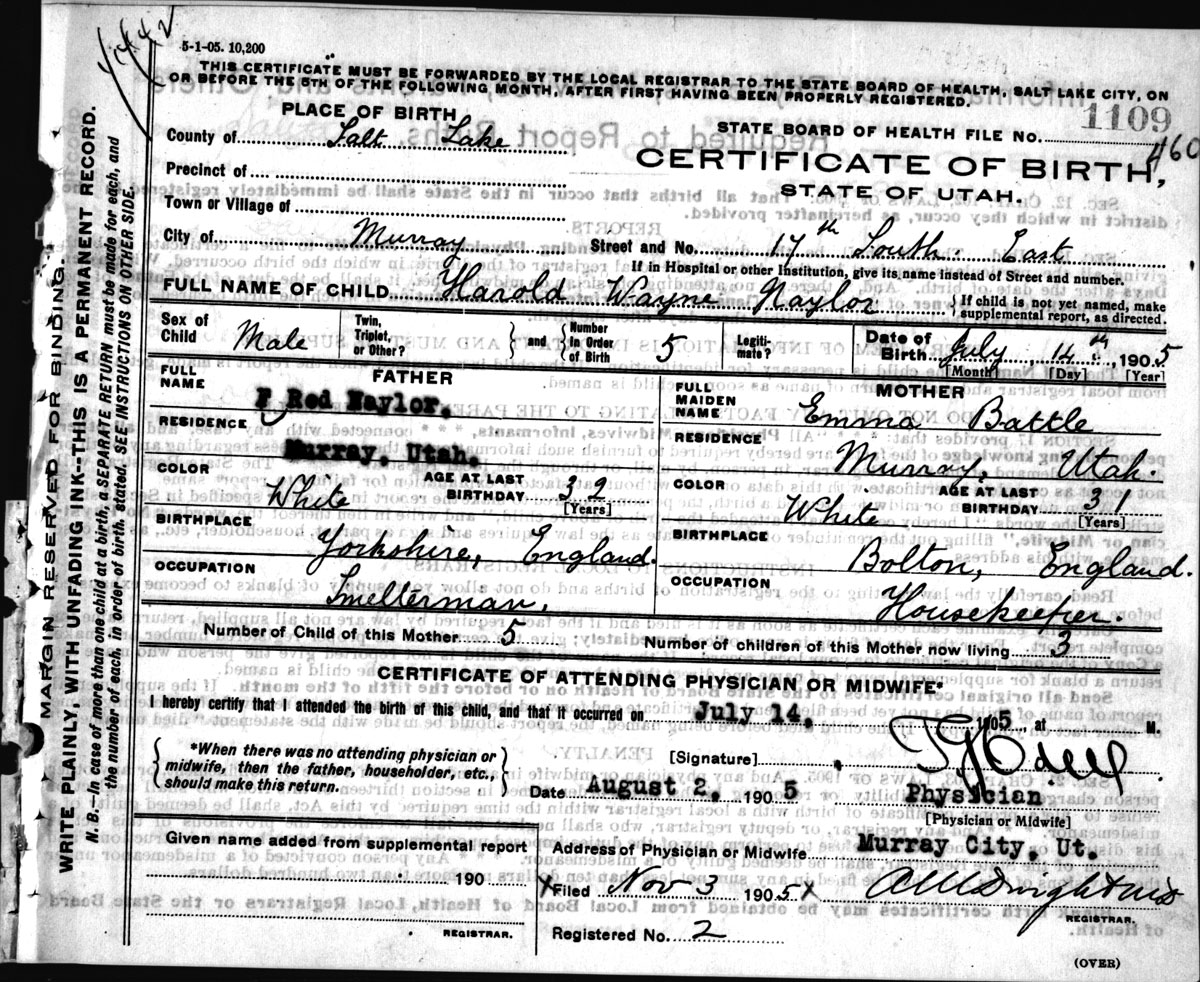 5-1-05. 10,200
THIS CERTIFICATE MUST BE FORWARDED BY THE LOCAL REGISTRAR TO THE STATE BOARD OF HEALTH, SALT LAKE CITY, ON
OR BEFORE THE 5TH OF THE FOLLOWING MONTH, AFTER FIRST HAVING BEEN PROPERLY REGISTERED.
PLACE OF BIRTH
STATE BOARD OF HEALTH FILE NO. 1109
460
County of Salt Lake
CERTIFICATE OF BIRTH,
STATE OF UTAH.
Precinct of
Town or Village of
City of Murray Street and No. 17th South. East
If in Hospital or other Institution, give its name instead of Street and number.
FULL NAME OF CHILD Harold Wayne Naylor { If child is not yet named, make supplemental report, as directed.
Sex of Child Male Twin, Triplet, or Other? } and { Number in Order of Birth 5 Legiti-mate? Date of Birth July 14th, 1905
[Month] [Day] [Year]
FATHER
FULL NAME F Red Naylor.
RESIDENCE Murray, Utah.
COLOR White AGE AT LAST BIRTHDAY 32
[Years]
BIRTHPLACE Yorkshire, England.
OCCUPATION Smelterman,
MOTHER
FULL MAIDEN NAME Emma Battle
RESIDENCE Murray, Utah.
COLOR White AGE AT LAST BIRTHDAY 31
[Years]
BIRTHPLACE Bolton, England.
OCCUPATION Housekeeper.
Number of Child of this Mother 5 Number of children of this Mother now living 3
CERTIFICATE OF ATTENDING PHYSICIAN OR MIDWIFE.
I hereby certify that I attended the birth of this child, and that it occurred on July 14, 1905, at M.
{ *When there was no attending physician or midwife, then the father, householder, etc., should make this return. }
[Signature]
Date August 2, 1905 Physician
[Physician or Midwife]
Given name added from supplemental report
190
REGISTRAR.
Address of Physician or Midwife Murray City, Ut.
X Filed Nov 3 1905 X
REGISTRAR.
Registered No. 2
(OVER)
MARGIN RESERVED FOR BINDING
WRITE PLAINLY, WITH UNFADING INK--THIS IS A PERMANENT RECORD.
N. B.--In case of more than one child at a birth, a SEPARATE RETURN must be made for each, and
the number of each, in order of birth, stated. SEE INSTRUCTIONS ON OTHER SIDE.